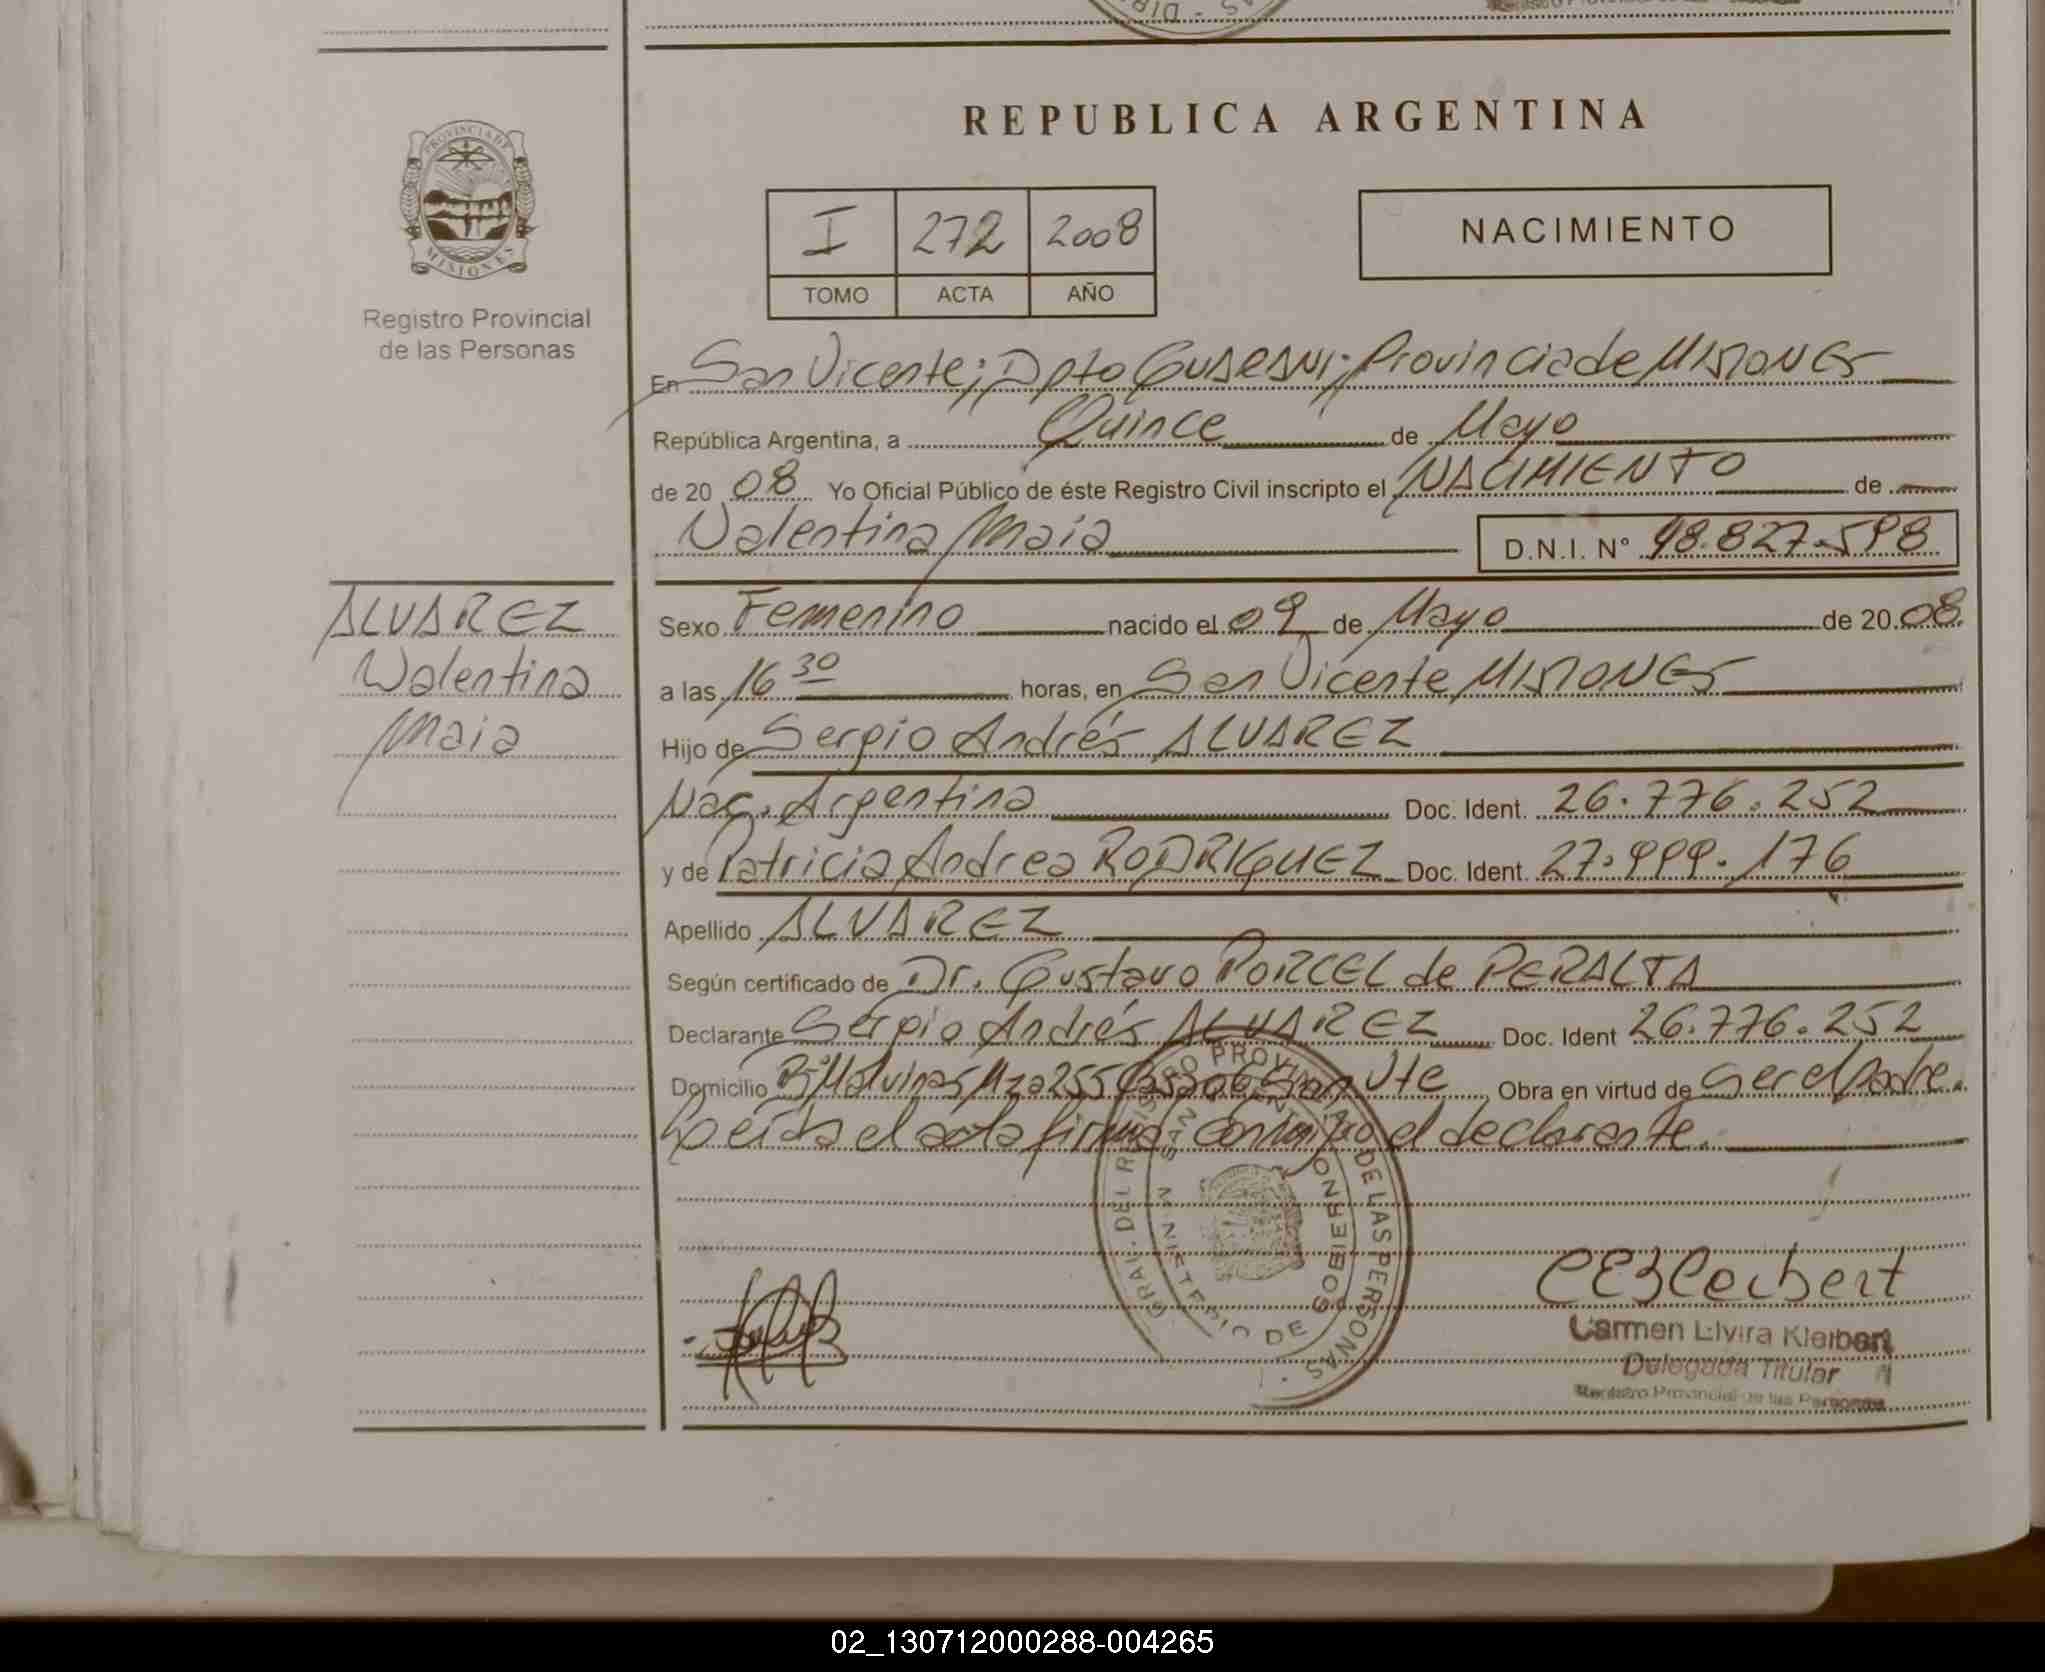 REPUBLICA ARGENTINA
PROVINCIA DE
MISIONES
Registro Provincial
de las Personas
I 272 2008
TOMO ACTA AÑO
NACIMIENTO
En San Vicente; Dpto GUARANI; Provincia de MISIONES
República Argentina, a Quince de Mayo
de 20 08 Yo Oficial Público de éste Registro Civil inscripto el NACIMIENTO de
Valentina Maia D.N.I. N° 48.827.598
ALVAREZ
Valentina
Maia
Sexo Femenino nacido el 09 de Mayo de 20 08
a las 16 30 horas, en San Vicente MISIONES
Hijo de Sergio Andrés ALVAREZ
Nac. Argentina Doc. Ident. 26.776.252
y de Patricia Andrea RODRIGUEZ Doc. Ident. 27.999.176
Apellido ALVAREZ
Según certificado de Dr. Gustavo PORCEL de PERALTA
Declarante Sergio Andrés ALVAREZ Doc. Ident 26.776.252
Domicilio Bº Malvinas Mza 255 Casa 06 San Vte Obra en virtud de ser el Padre.
Leída el acta firma conmigo el declarante.
GRAL. DEL REGISTRO PROVINCIAL DE LAS PERSONAS
MINISTERIO DE GOBIERNO
SAN VICENTE
CEKleibert
Carmen Elvira Kleibert
Delegada Titular
Registro Provincial de las Personas
02_130712000288-004265